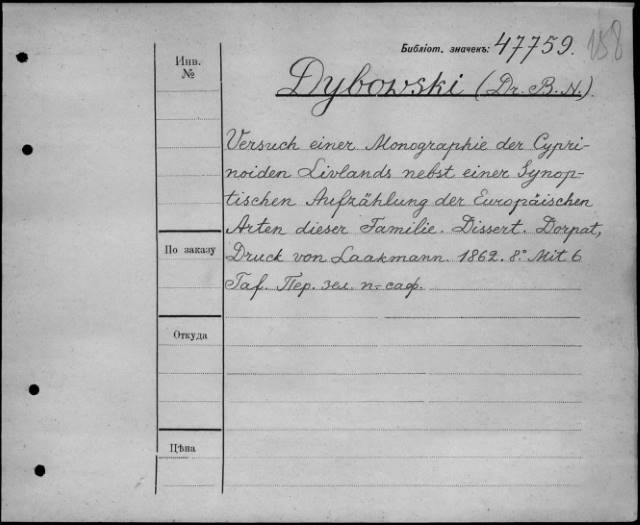 Библіот. значекъ: 47759. 158
Инв.
№
Dybowski (Dr. B. N.).
Versuch einer Monographie der Cypri-
noiden Livlands nebst einer Synop-
tischen Aufzählung der Europäischen
Arten dieser Familie. Dissert. Dorpat,
По заказу
Druck von Laakmann. 1862. 8.° Mit 6
Taf. Пер. зел. п.-саф.
Откуда
Цѣна